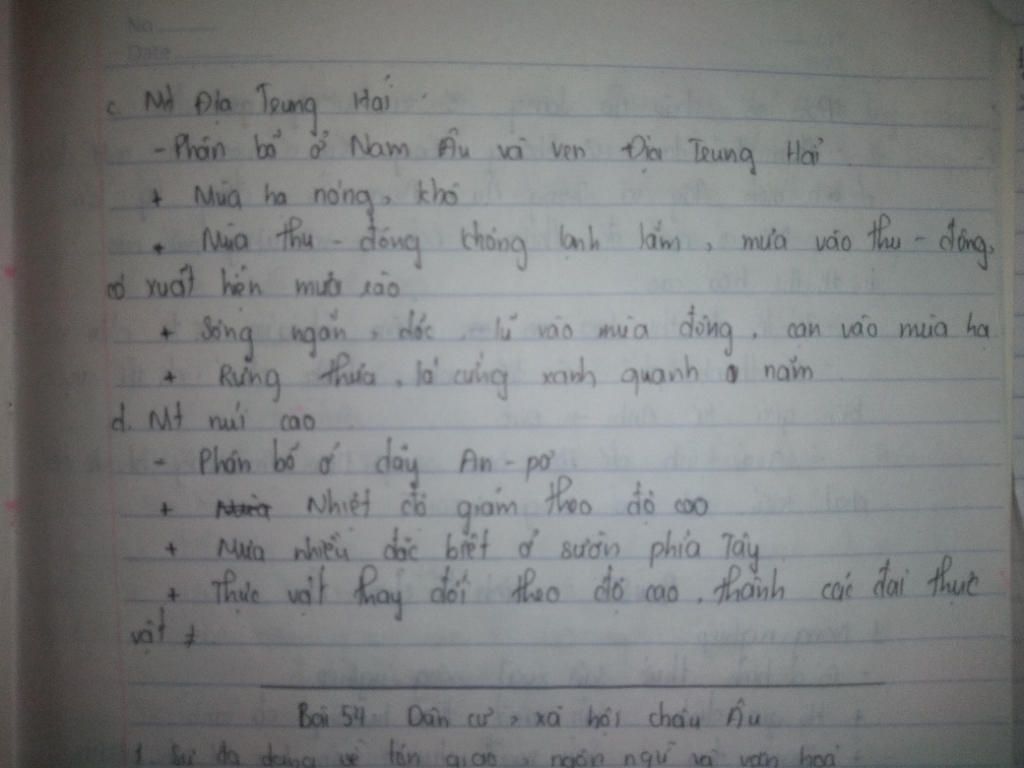 No
Date
c. Mt Địa Trung Hải
- Phân bố ở Nam Âu và ven Địa Trung Hải
+ Mùa hạ nóng, khô
+ Mùa thu - đông không lạnh lắm, mưa vào thu - đông,
có xuất hiện mưa rào
+ Sông ngắn, dốc, lũ vào mùa đông, cạn vào mùa hạ
+ Rừng thưa, lá cứng xanh quanh năm
d. Mt núi cao
- Phân bố ở dãy An-pơ
+ Nhiệt độ giảm theo độ cao
+ Mưa nhiều đặc biệt ở sườn phía Tây
+ Thực vật thay đổi theo độ cao, thành các đai thực
vật ≠
Bài 54 Dân cư, xã hội châu Âu
1. Sự đa dạng về tôn giáo, ngôn ngữ và văn hoá